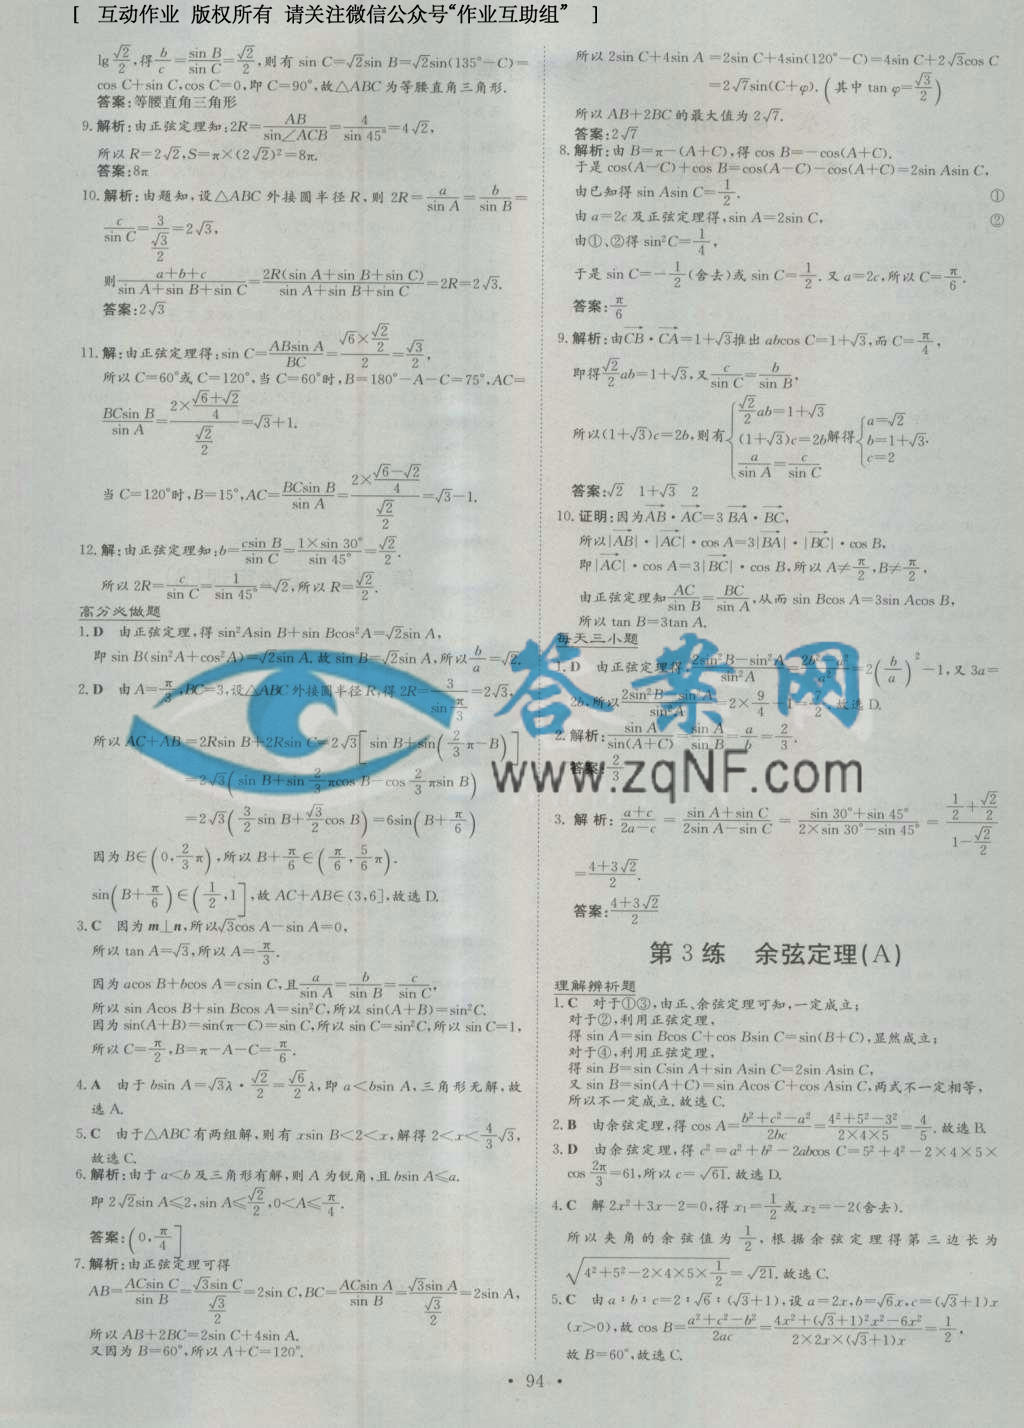 [ 互动作业 版权所有 请关注微信公众号“作业互助组” ]
lg √2/2,得 b/c=sin B/sin C=√2/2,则有 sin C=√2sin B=√2sin(135°-C)=
cos C+sin C,cos C=0,即 C=90°,故△ABC 为等腰直角三角形.
答案:等腰直角三角形
9. 解析:由正弦定理知:2R=AB/sin∠ACB=4/sin 45°=4√2,
所以 R=2√2,S=π×(2√2)²=8π.
答案:8π
10. 解析:由题知,设△ABC 外接圆半径 R,则 2R=a/sin A=b/sin B=
c/sin C=3/(√3/2)=2√3,
则(a+b+c)/(sin A+sin B+sin C)=2R(sin A+sin B+sin C)/(sin A+sin B+sin C)=2R=2√3.
答案:2√3
11. 解:由正弦定理得:sin C=ABsin A/BC=(√6×√2/2)/2=√3/2,
所以 C=60°或 C=120°,当 C=60°时,B=180°-A-C=75°,AC=
BCsin B/sin A=(2×(√6+√2)/4)/(√2/2)=√3+1.
当 C=120°时,B=15°,AC=BCsin B/sin A=(2×(√6-√2)/4)/(√2/2)=√3-1.
12. 解:由正弦定理知:b=csin B/sin C=1×sin 30°/sin 45°=√2/2.
所以 2R=c/sin C=1/sin 45°=√2,所以 R=√2/2.
高分必做题
1. D 由正弦定理,得 sin²Asin B+sin Bcos²A=√2sin A,
即 sin B(sin²A+cos²A)=√2sin A,故 sin B=√2sin A,所以 b/a=√2.
2. D 由 A=π/3,BC=3,设△ABC 外接圆半径 R,得 2R=3/sin π/3=2√3,
所以 AC+AB=2Rsin B+2Rsin C=2√3[sin B+sin(2/3π-B)]
=2√3(sin B+sin 2/3πcos B-cos 2/3πsin B)
=2√3(3/2 sin B+√3/2 cos B)=6sin(B+π/6)
因为 B∈(0,2/3π),所以 B+π/6∈(π/6,5/6π).
sin(B+π/6)∈(1/2,1],故 AC+AB∈(3,6],故选 D.
3. C 因为 m⊥n,所以√3cos A-sin A=0,
所以 tan A=√3,所以 A=π/3.
因为 acos B+bcos A=csin C,且a/sin A=b/sin B=c/sin C,
所以 sin Acos B+sin Bcos A=sin²C,所以 sin(A+B)=sin²C.
因为 sin(A+B)=sin(π-C)=sin C,所以 sin C=sin²C,所以 sin C=1,
所以 C=π/2,B=π-A-C=π/6.
4. A 由于 bsin A=√3λ·√2/2=√6/2λ,即 a<bsin A,三角形无解,故
选 A.
5. C 由于△ABC 有两组解,则有 xsin B<2<x,解得 2<x<4/3√3,
故选 C.
6. 解析:由于 a<b 及三角形有解,则 A 为锐角,且 bsin A≤a.
即 2√2sin A≤2,sin A≤√2/2,0<A≤π/4.
答案:(0,π/4]
7. 解析:由正弦定理可得
AB=ACsin C/sin B=√3sin C/(√3/2)=2sin C,BC=ACsin A/sin B=√3sin A/(√3/2)=2sin A,
所以 AB+2BC=2sin C+4sin A.
又因为 B=60°,所以 A+C=120°.
所以 2sin C+4sin A=2sin C+4sin(120°-C)=4sin C+2√3cos C
=2√7sin(C+φ).(其中 tan φ=√3/2)
所以 AB+2BC 的最大值为 2√7.
答案:2√7
8. 解析:由 B=π-(A+C),得 cos B=-cos(A+C).
于是 cos(A-C)+cos B=cos(A-C)-cos(A+C)=2sin Asin C,
由已知得 sin Asin C=1/2. ①
由 a=2c 及正弦定理得,sin A=2sin C, ②
由①、②得 sin²C=1/4,
于是 sin C=-1/2(舍去)或 sin C=1/2.又 a=2c,所以 C=π/6.
答案:π/6
9. 解析:由CB·CA=1+√3推出 abcos C=1+√3,而 C=π/4,
即得√2/2ab=1+√3,又c/sin C=b/sin B,
所以(1+√3)c=2b,则有{√2/2ab=1+√3 (1+√3)c=2b a/sin A=c/sin C 解得{a=√2 b=1+√3. c=2
答案:√2 1+√3 2
10. 证明:因为AB·AC=3 BA·BC,
所以|AB|·|AC|·cos A=3|BA|·|BC|·cos B,
即|AC|·cos A=3|BC|·cos B,所以 A≠π/2,B≠π/2,
由正弦定理知AC/sin B=BC/sin A,从而 sin Bcos A=3sin Acos B,
所以 tan B=3tan A.
每天三小题
1. D 由正弦定理得:(2sin²B-sin²A)/sin²A=(2b²-a²)/a²=2(b/a)²-1,又 3a=
2b,所以(2sin²B-sin²A)/sin²A=2×9/4-1=7/2.故选 D.
2. 解析:sin A/sin(A+C)=sin A/sin B=a/b=2/3.
答案:2/3
答案网
www.zqNF.com
3. 解析:(a+c)/(2a-c)=(sin A+sin C)/(2sin A-sin C)=(sin 30°+sin 45°)/(2×sin 30°-sin 45°)=(1/2+√2/2)/(1-√2/2)
=(4+3√2)/2.
答案:(4+3√2)/2
第 3 练 余弦定理(A)
理解辨析题
1. C 对于①③,由正、余弦定理可知,一定成立;
对于②,利用正弦定理,
得 sin A=sin Bcos C+cos Bsin C=sin(B+C),显然成立;
对于④,利用正弦定理,
得 sin B=sin Csin A+sin Asin C=2sin Asin C,
又 sin B=sin(A+C)=sin Acos C+cos Asin C,两式不一定相等,
所以不一定成立.故选 C.
2. B 由余弦定理,得 cos A=(b²+c²-a²)/2bc=(4²+5²-3²)/(2×4×5)=4/5.故选 B.
3. D 由余弦定理,得 c²=a²+b²-2abcos C=5²+4²-2×4×5×
cos 2π/3=61,所以 c=√61.故选 D.
4. C 解 2x²+3x-2=0,得 x₁=1/2或 x₂=-2(舍去).
所以夹角的余弦值为1/2,根据余弦定理得第三边长为
√(4²+5²-2×4×5×1/2)=√21.故选 C.
5. C 由 a∶b∶c=2∶√6∶(√3+1),设 a=2x,b=√6x,c=(√3+1)x
(x>0),故 cos B=(a²+c²-b²)/2ac=(4x²+(√3+1)²x²-6x²)/(2×2x×(√3+1)x)=1/2,
故 B=60°,故选 C.
• 94 •